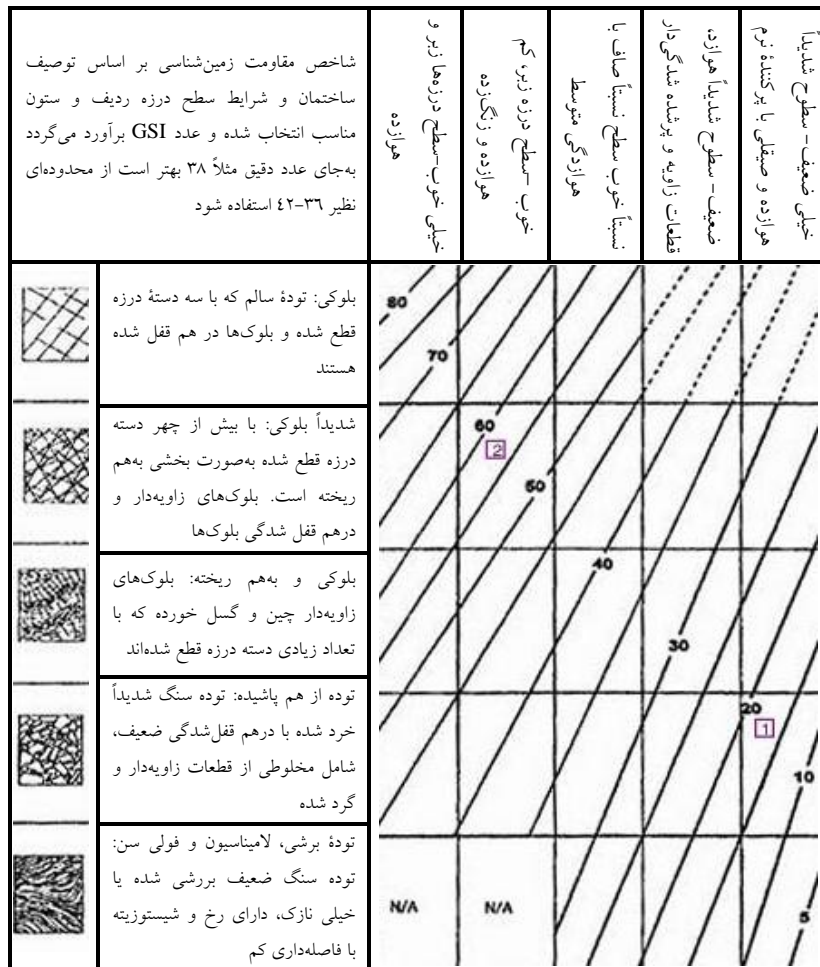 شاخص مقاومت زمین‌شناسی بر اساس توصیف
ساختمان و شرایط سطح درزه ردیف و ستون
مناسب انتخاب شده و عدد GSI برآورد می‌گردد
به‌جای عدد دقیق مثلاً ۳۸ بهتر است از محدوده‌ای
نظیر ۳٦-٤۲ استفاده شود
خیلی خوب-سطح درزه‌ها زبر و
هوازده
خوب -سطح درزه زبر، کم
هوازده و زنگ‌زده
نسبتاً خوب سطح نسبتاً صاف با
هوازدگی متوسط
ضعیف- سطوح شدیداً هوازد،
قطعات زاویه و پرشده شدگی‌دار
خیلی ضعیف- سطوح شدیداً
هوازده و صیقلی با پرکنندۀ نرم
بلوکی: تودۀ سالم که با سه دستۀ درزه
قطع شده و بلوک‌ها در هم قفل شده
هستند
شدیداً بلوکی: با بیش از چهر دسته
درزه قطع شده به‌صورت بخشی به‌هم
ریخته است. بلوک‌های زاویه‌دار و
درهم قفل شدگی بلوک‌ها
بلوکی و به‌هم ریخته: بلوک‌های
زاویه‌دار چین و گسل خورده که با
تعداد زیادی دسته درزه قطع شده‌اند
توده از هم پاشیده: توده سنگ شدیداً
خرد شده با درهم قفل‌شدگی ضعیف،
شامل مخلوطی از قطعات زاویه‌دار و
گرد شده
تودۀ برشی، لامیناسیون و فولی سن:
توده سنگ ضعیف بررشی شده یا
خیلی نازک، دارای رخ و شیستوزیته
با فاصله‌داری کم
80
70
60
2
50
40
30
20
1
10
N/A
N/A
5